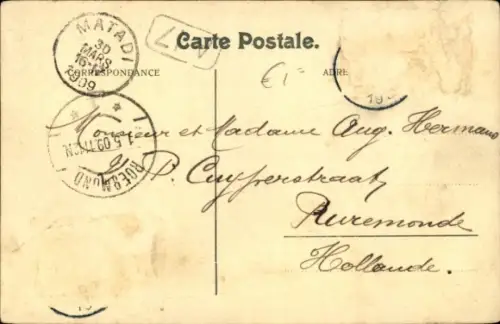 MATADI
30
MARS
16-
1909
Carte Postale.
CORRESPONDANCE
ADRE
€1=
19
ROERMOND
1.5.09.11-12N
Monsieur et Madame Aug. Hermans
P. Cuyperstraat,
Ruremonde
Hollande.